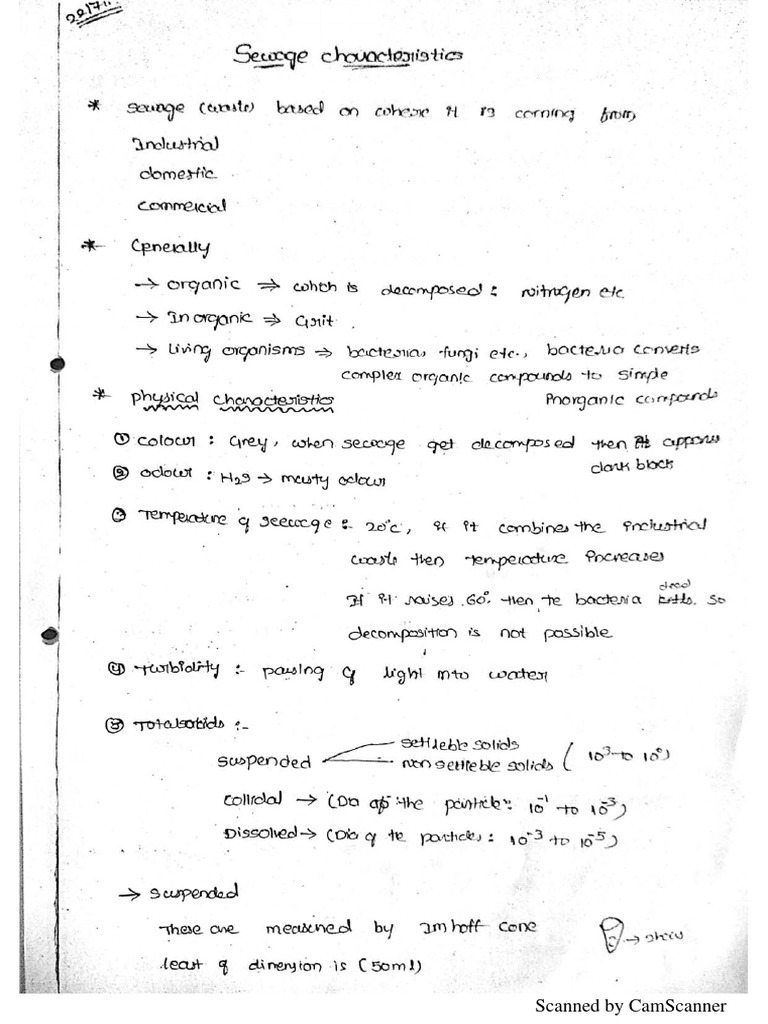 22/7/11
Sewage characteristics
* sewage (waste) based on where it is coming from
Industrial
domestic
commercial
* Generally
→ organic ⇒ which is decomposed : nitrogen etc
→ Inorganic ⇒ Grit.
→ Living organisms ⇒ bacterias, fungi etc., bacteria converts
complex organic compounds to simple
inorganic compounds
* physical characteristics
① colour : Grey, when sewage get decomposed then it appears
dark black
② odour : H2S → musty odour
③ Temperature of seewage :- 20°c, if it combines the industrial
waste then temperature increases
If it raises 60° then te bacteria dead so
decomposition is not possible
④ Turbidity :- passing of light into water
⑤ Total solids :-
suspended settleble solids
non settleble solids ( 10³ to 10⁰)
colloidal → (Dia of the particle : 10⁻¹ to 10⁻³)
Dissolved → (Dia of te particles : 10⁻³ to 10⁻⁵)
→ suspended
These are measured by Imhoff cone
least of dimension is (50ml)
Scanned by CamScanner